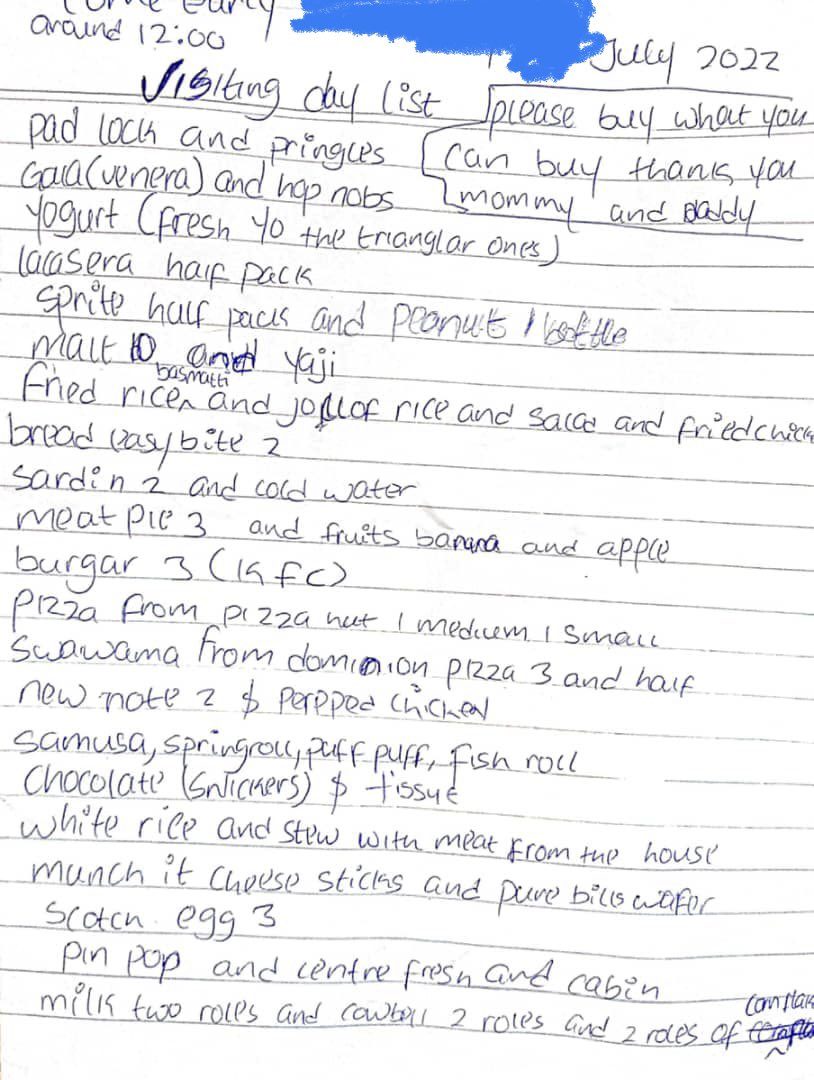 come early
around 12:00
July 2022
Visiting day list
please buy what you
can buy thanks you
mommy and Daddy
pad lock and pringles
Gala(venera) and hop nobs
Yogurt (fresh yo the trianglar ones)
lacasera half pack
sprite half pack and peanut 1 bottle
malt 10 and yaji
basmatti
fried rice^ and jollof rice and salad and fried chick
bread easy bite 2
sardin 2 and cold water
meat pie 3 and fruits banana and apple
burgar 3 (kfc)
pizza from pizza hut 1 medium 1 small
swawama from dominion pizza 3 and half
new note 2 $ perpped chicken
samusa, springroll, puff puff, fish roll
chocolate (snickers) $ tissue
white rice and stew with meat from the house
munch it cheese sticks and pure bliss wafer
scotch egg 3
pin pop and centre fresh and cabin
corn flak
milk two roles and cowbell 2 roles and 2 roles of